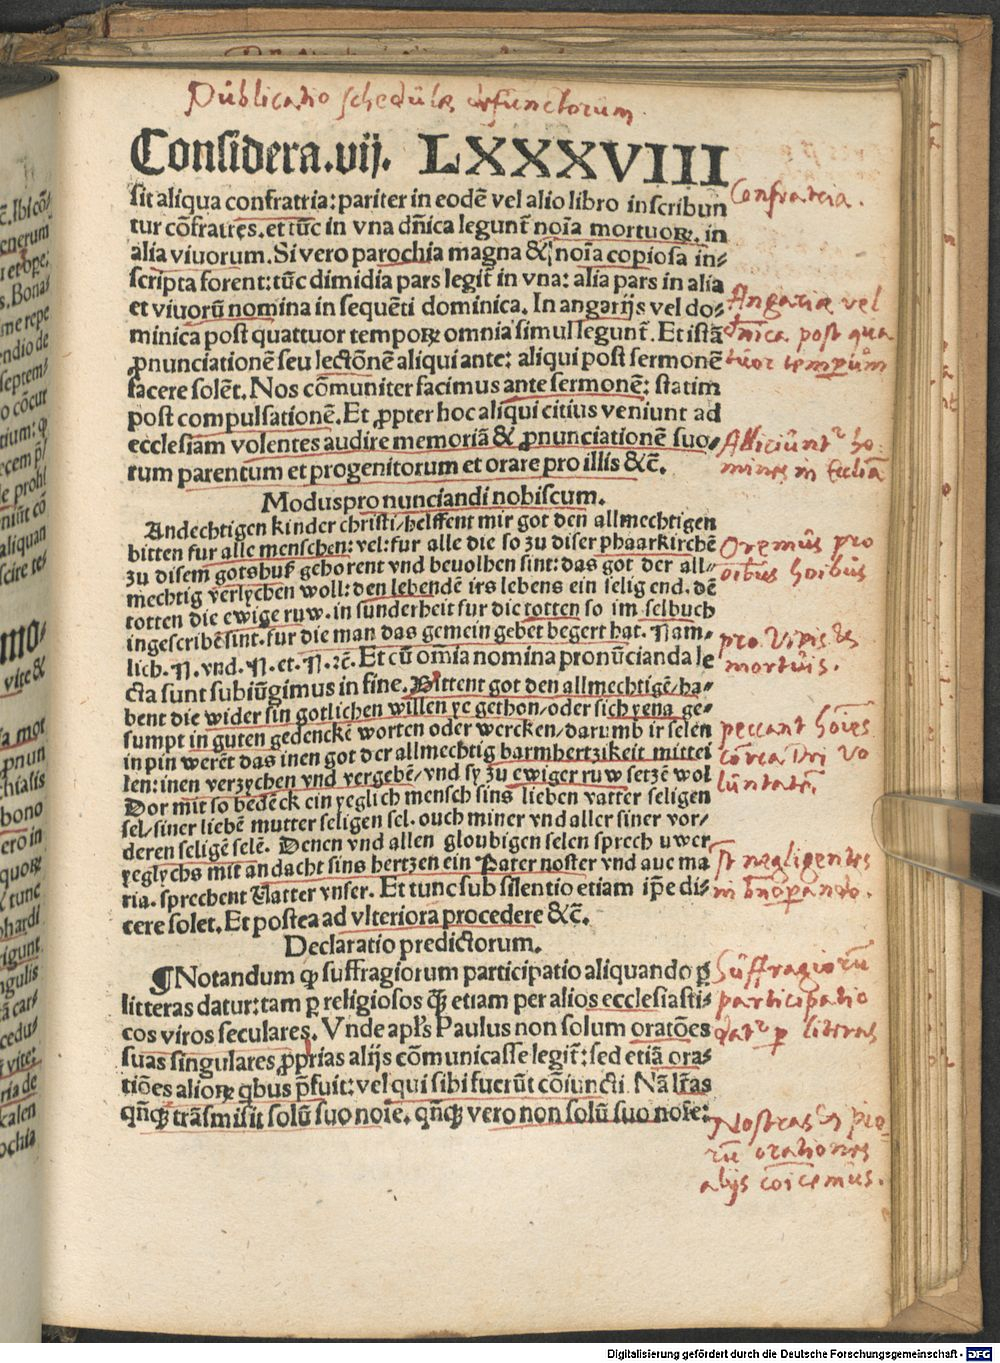 Publicatio schedulæ defunctorum
Considera.vij. LXXXVIII
sit aliqua confratria: pariter in eodē vel alio libro inscribun
tur cōfratres. et tūc in vna dn̄ica legunt̄ noīa mortuoꝝ. in
alia viuorum. Si vero parochia magna & noīa copiosa in-
scripta forent: tūc dimidia pars legit̄ in vna: alia pars in alia
et viuorū nomina in sequēti dominica. In angarijs vel do-
minica post quattuor temporꝝ omnia simul legunt̄. Et istā
ꝓnunciationē seu lectōnē aliqui ante: aliqui post sermonē
facere solēt. Nos cōmuniter facimus ante sermonē: statim
post compulsationē. Et ꝓpter hoc aliqui citius veniunt ad
ecclesiam volentes audire memoriā & ꝓnunciationē suo-
rum parentum et progenitorum et orare pro illis &c̄.
Modus pronunciandi nobiscum.
Andechtigen kinder christi/helffent mir got den allmechtigen
bitten fur alle menschen: vel: fur alle die so zu diser pharkirchē
zu disem gotshuß gehorent vnd beuolhen sint: das got der all-
mechtig verlychen woll: den lebendē irs lebens ein selig end. dē
totten die ewige ruw. in sunderheit fur die totten so im selbuch
ingescribē sint. fur die man das gemein gebet begert hat. Nam-
lich. N. vnd. N. et. N. ꝛc̄. Et cū om̄ia nomina pronūcianda le
cta sunt subiūgimus in fine. Bittent got den allmechtigē/ha-
bent die wider sin gotlichen willen ye gethon/oder sich yena ge-
sumpt in guten gedenckē worten oder wercken/darumb ir selen
in pin werēt das inen got der allmechtig barmhertzikeit mittei
len: inen verzychen vnd vergebē/vnd sy zu ewiger ruw setzē wol
Dor mit so bedēck ein yeglich mensch sins lieben vatter seligen
sel/siner liebē mutter seligen sel. ouch miner vnd aller siner vor-
deren seligē selē. Denen vnd allen gloubigen selen sprech uwer
yeglychs mit andacht sins hertzen ein Pater noster vnd aue ma
ria. sprechent Vatter vnser. Et tunc sub silentio etiam ip̄e di-
cere solet. Et postea ad vlteriora procedere &c̄.
Declaratio predictorum.
¶Notandum ꝙ suffragiorum participatio aliquando ꝑ
litteras datur: tam ꝑ religiosos ꝙ̄ etiam per alios ecclesiasti-
cos viros seculares. Vnde apl̄s Paulus non solum oratōes
suas singulares ꝓprias alijs cōmunicasse legit̄: sed etiā ora-
tiōes alioꝝ qbus p̄fuit: vel qui sibi fuerūt cōiuncti. Nā lr̄as
qn̄qꝫ trāsmisit solū suo noīe. qn̄qꝫ vero non solū suo noīe:
Confratria.
Angariæ vel
dn̄ica post qua
tuor temporum
Alliciūnt̄ ho-
mines in Eccl̄iā
Oremus pro
oībus hoībus
pro vivis &
mortuis.
peccant hoīes
cōtra Dei vo
lūntatē
Sūffragiorū
participatio
dat̄ ꝑ literas
Nostras & pio-
rū orationes
alijs cōicemus.